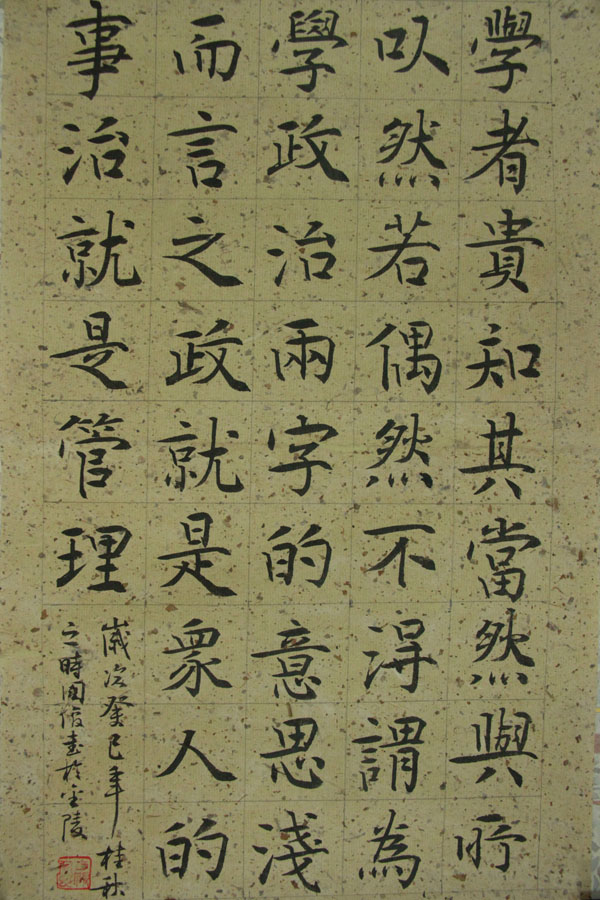 學者貴知其當然與所
以然若偶然不得謂為
學政治兩字的意思淺
而言之政就是眾人的
事治就是管理
歲次癸巳年桂秋
之時書於金陵